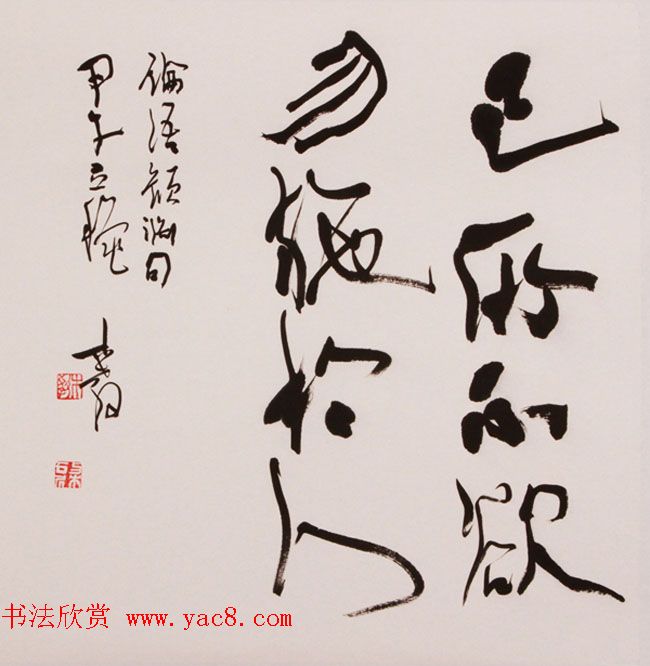 己所不欲
勿施於人
論語顏淵句
甲午立龝
书法欣赏 www.yac8.com